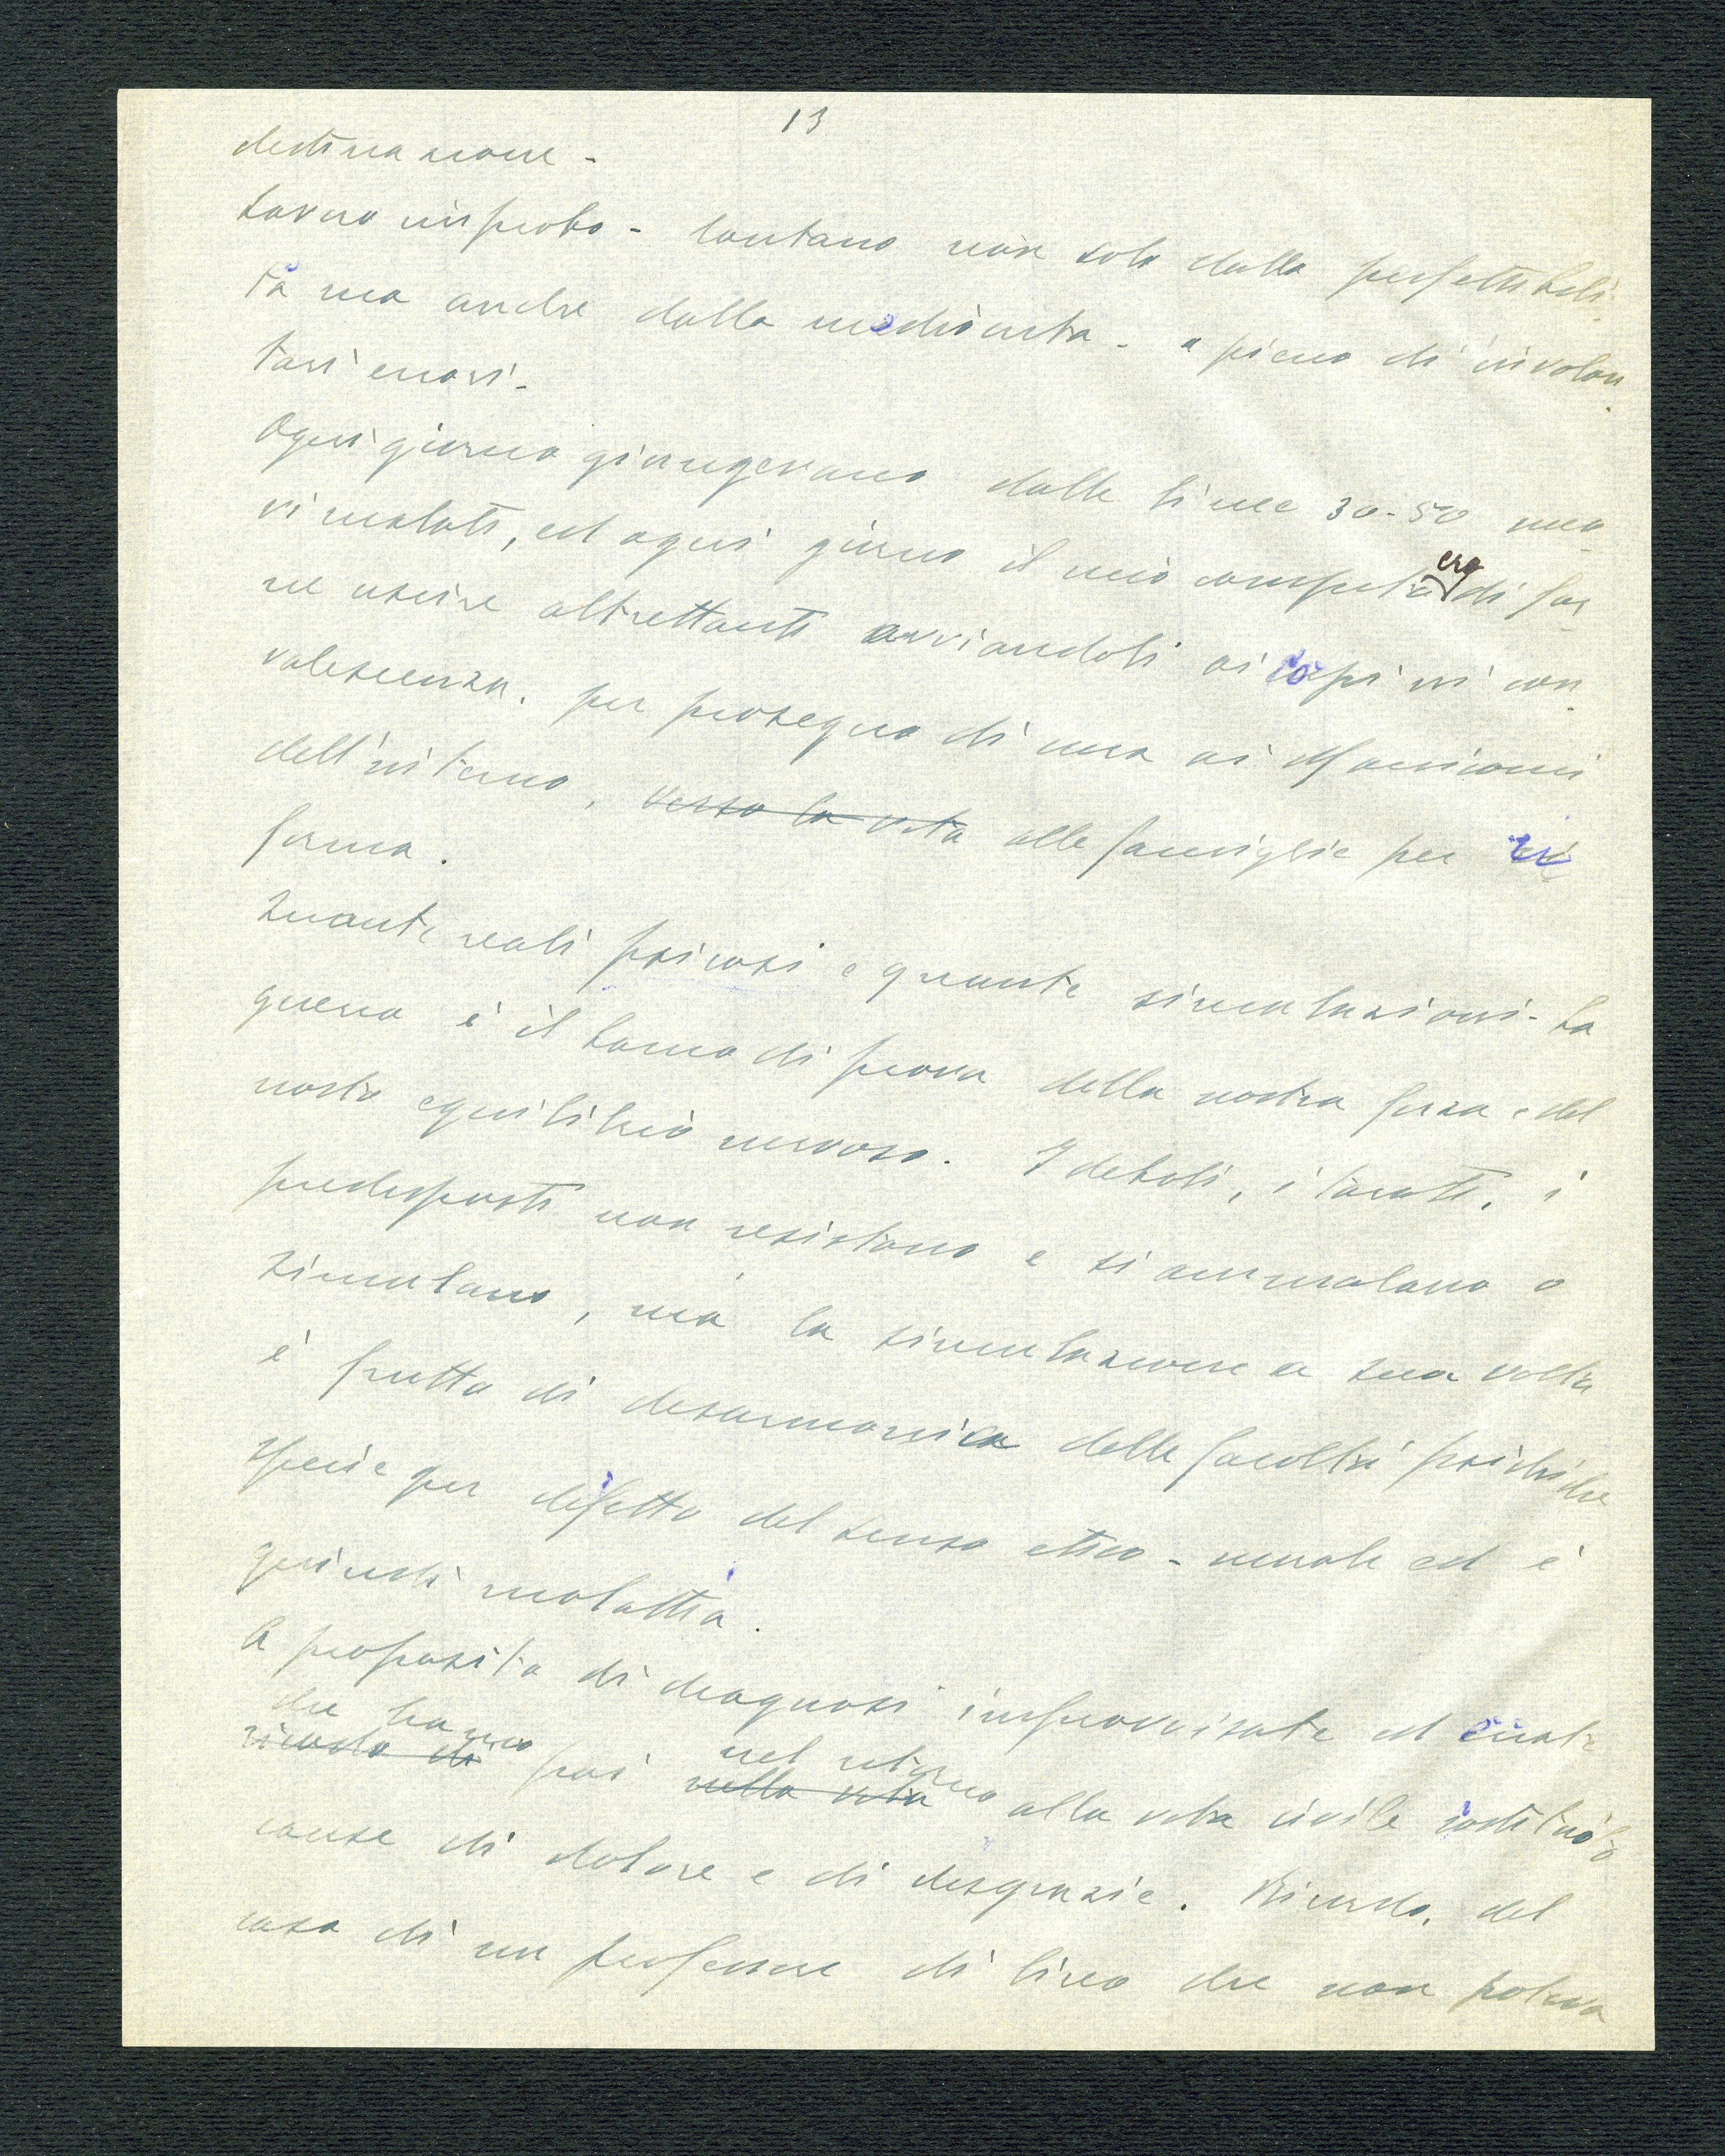 13
destinazione -
Lavoro improbo - lontano non solo dalla perfettibili
tà ma anche dalla mediocrità - e pieno di involon
tari errori -
Ogni giorno giungevano dalle linee 30-50 nuo
vi malati, ed ogni giorno il mio compito era di far
ne uscire altrettanti avviandoli ai corpi in con
valescenza. per proseguo di cura ai Manicomi
dell'interno, verso la vita alle famiglie per ri
forma.
Quante reali psicosi e quante simulazioni - La
guerra è il banco di prova della nostra forza e del
nostro equilibrio nervoso. I deboli, i tarati, i
predisposti non resistono e si ammalano o
simulano, ma la simulazione a sua volta
è frutto di disarmonica delle facoltà psichiche
specie per difetto del senso etico - morale ed è
quindi malattia.
A proposito di diagnosi improvvisate ed errate
che hanno nel ritorno
ricordo di poi nella vita alla vita civile costituito
cause di dolore e di disgrazie. Ricordo, del
caso di un professore di liceo che non poteva